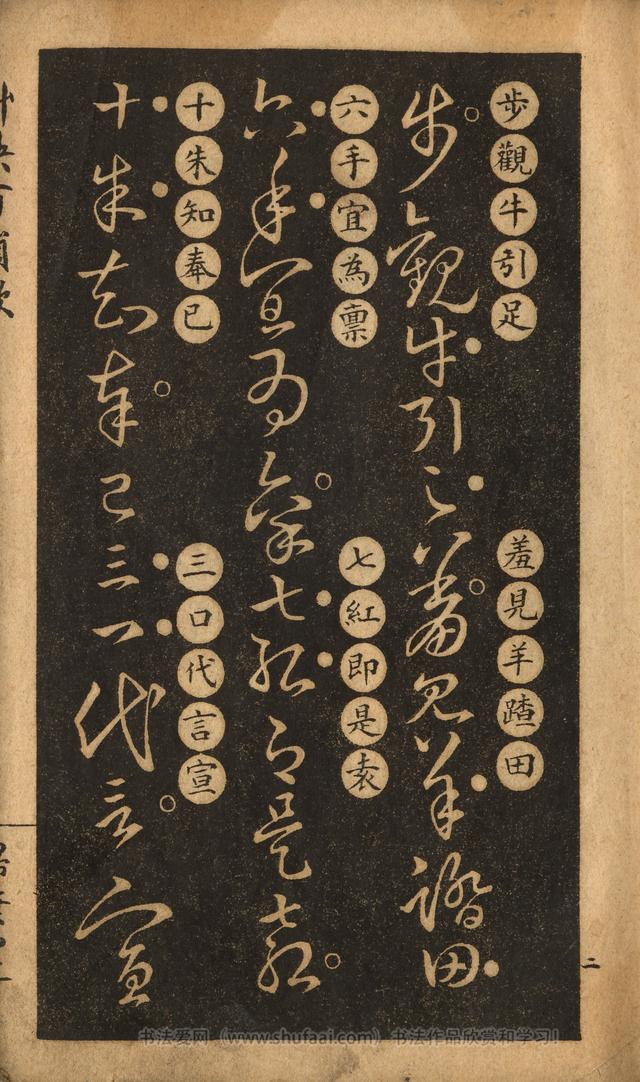 步觀牛引足
羞見羊蹅田
六手宜為禀
七紅即是袁
十朱知奉已
三口代言宣
二
书法爱网（www.shufaai.com）书法作品欣赏和学习！